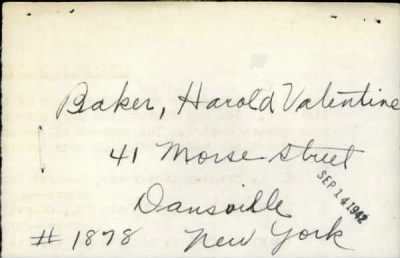 Baker, Harold Valentine
41 Morse Street
SEP 14 1942
Dansville
# 1878 New York